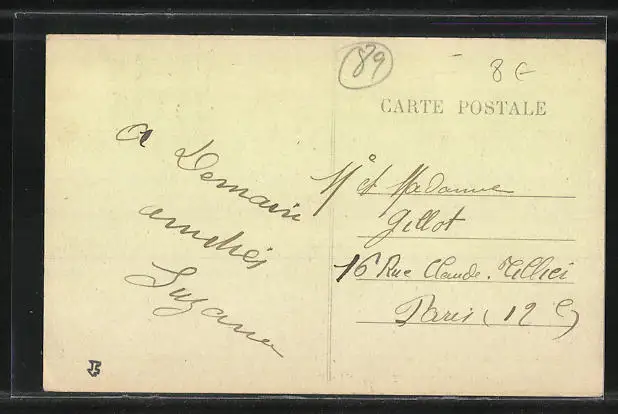 89
8 €
CARTE POSTALE
a Demain
Suzanne
Mr et Madame
Gillot
16 Rue Claude. Tillier
Paris (12e)